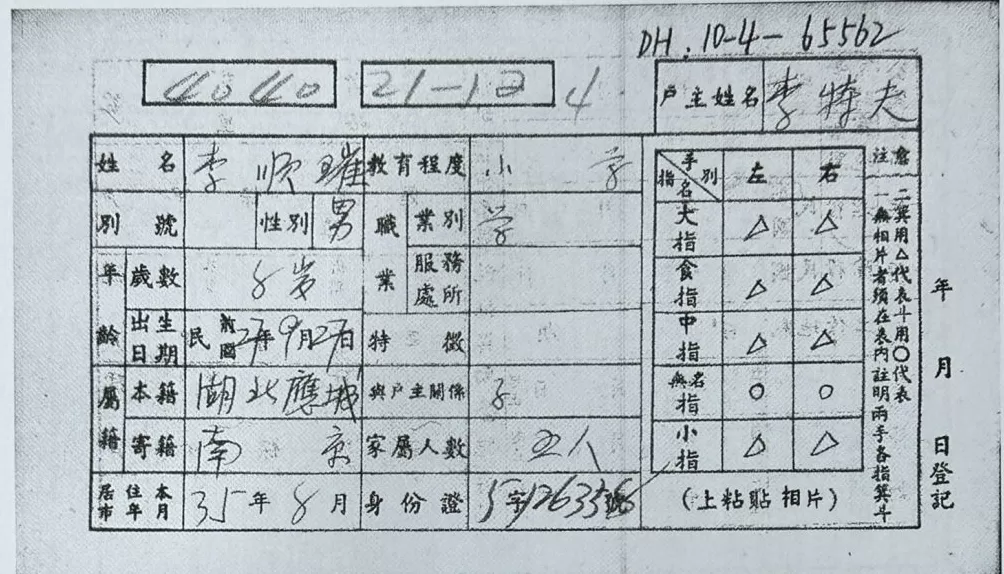 DH. 10-4-65562
4040 21-12 4 戶主姓名 李特夫
姓名 李順璀 教育程度 小学
別號 性別 男 職業 業別 学
年齡 歲數 8岁 服務處所
出生日期 民前國27年9月27日 特徵
屬籍 本籍 湖北應城 與戶主關係 子
寄籍 南京 家屬人數 五人
居住本市年月 35年8月 身份證 字1263356號
手別 指名 左 右
大指 △ △
食指 △ △
中指 △ △
無名指 ○ ○
小指 △ △
(上粘貼相片)
注意
一 無相片者須在表內註明兩手各指箕斗
二 箕用△代表斗用○代表
年 月 日登記